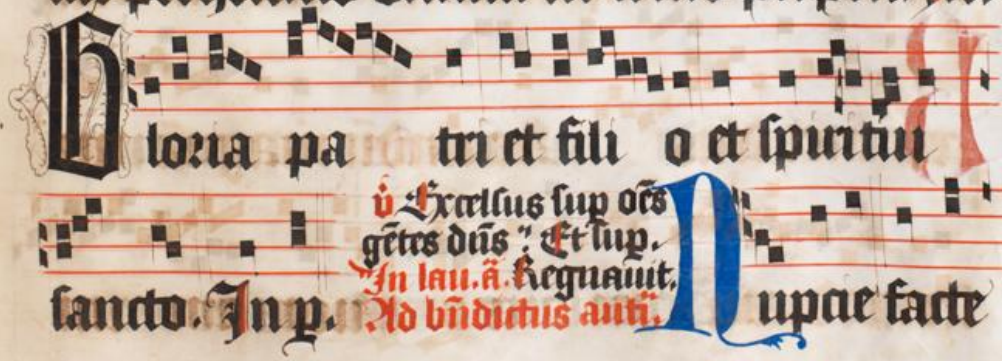 Gloria pa tri et fili o et spiritui
sancto. In p.
v̄ Excelsus sup om̄s
gētes dn̄s : Et sup.
In lau. ā. Regnauit.
Ad bn̄dictus anti.
Nupcie facte